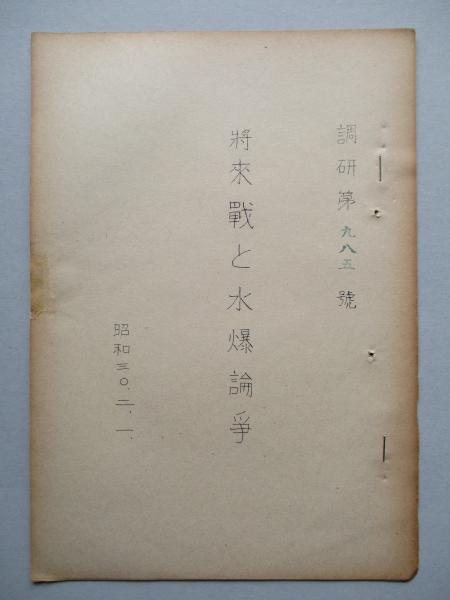 調研第九八五號
將來戰と水爆論爭
昭和三〇.二.一.